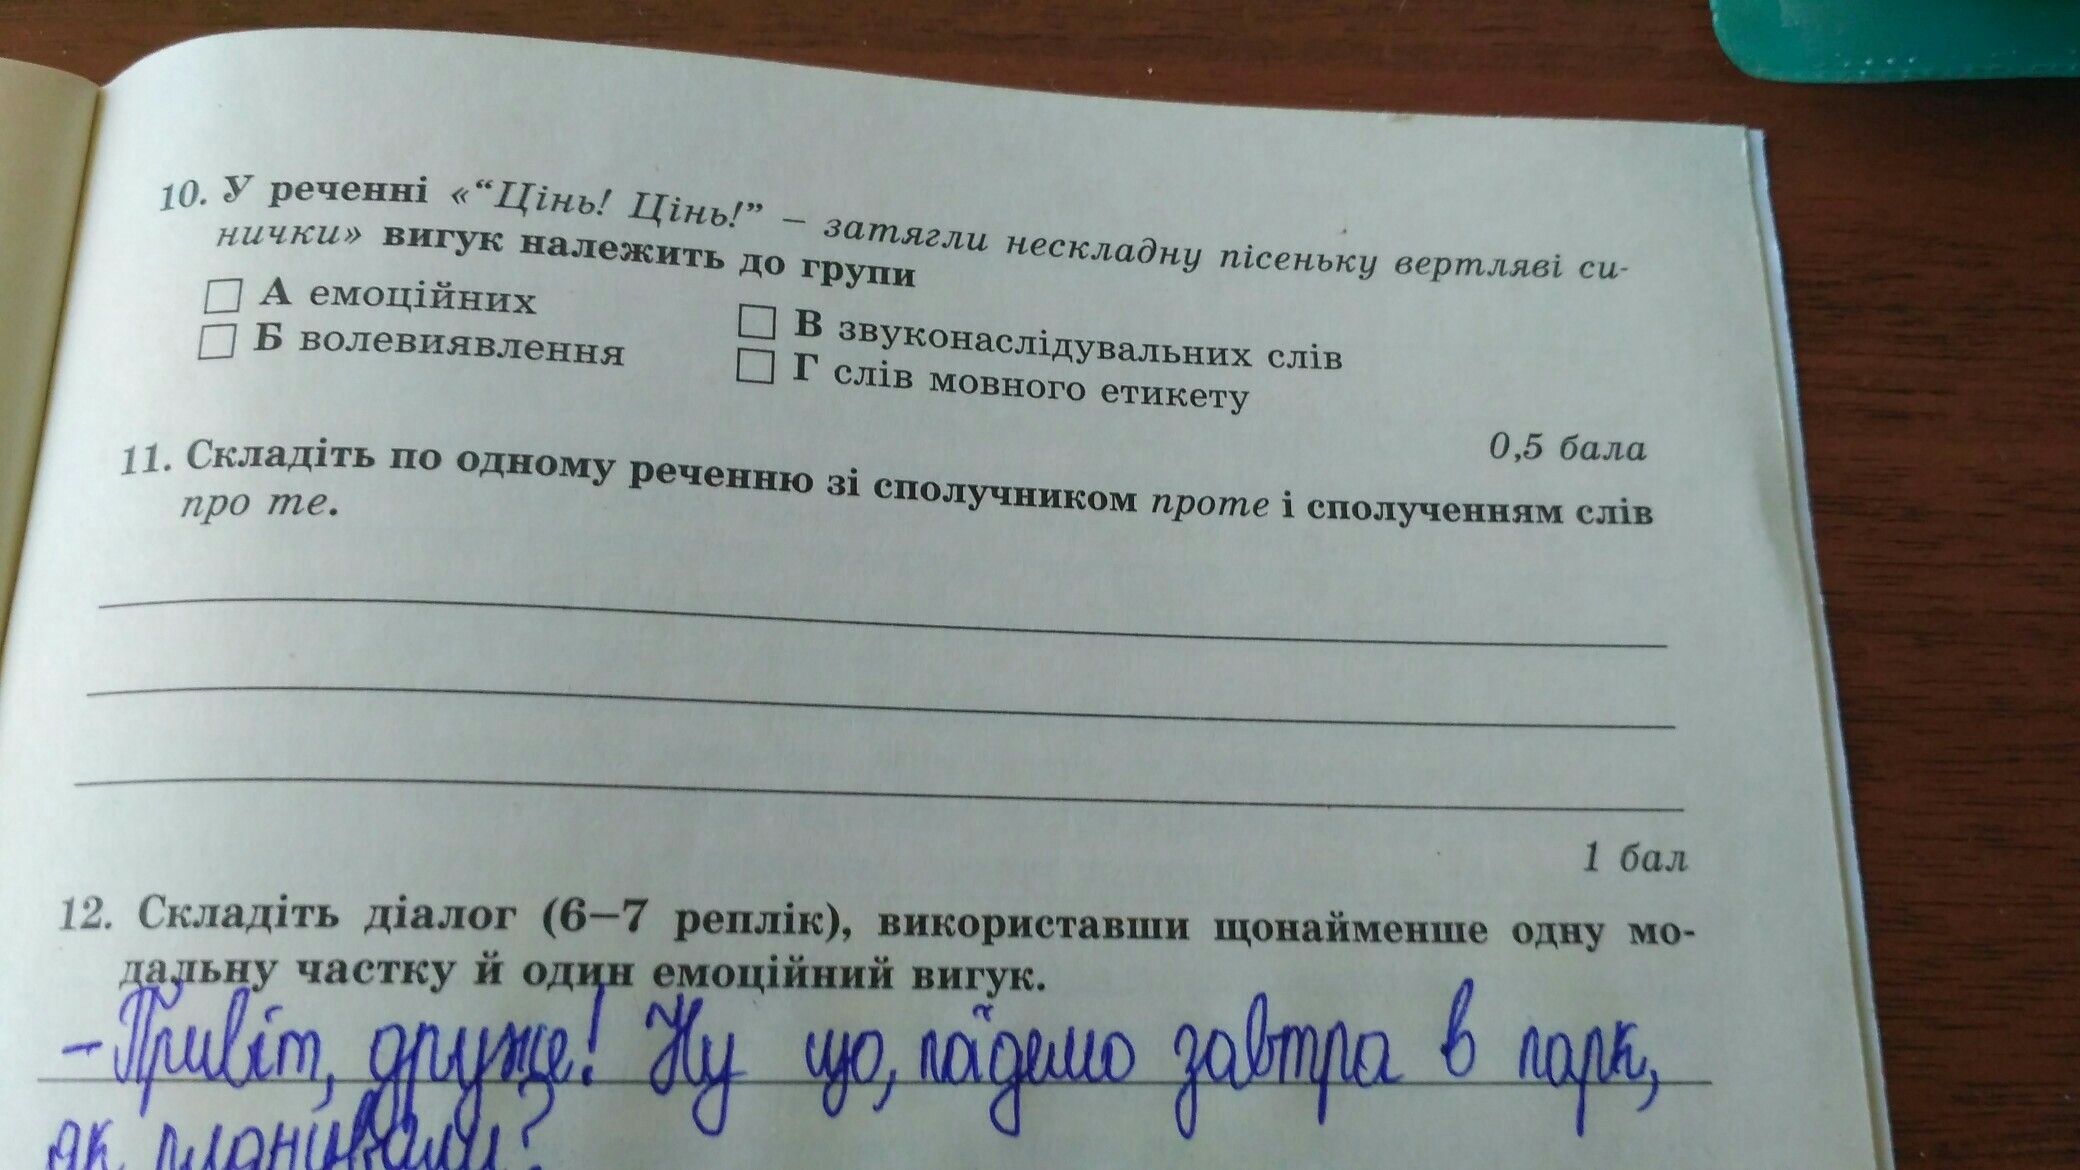 10. У реченні «“Цінь! Цінь!” – затягли нескладну пісеньку вертляві си-
нички» вигук належить до групи
А емоційних
Б волевиявлення
В звуконаслідувальних слів
Г слів мовного етикету
0,5 бала
11. Складіть по одному реченню зі сполучником проте і сполученням слів
про те.
1 бал
12. Складіть діалог (6—7 реплік), використавши щонайменше одну мо-
дальну частку й один емоційний вигук.
– Привіт, друже! Ну що, підемо завтра в парк,
як планували?